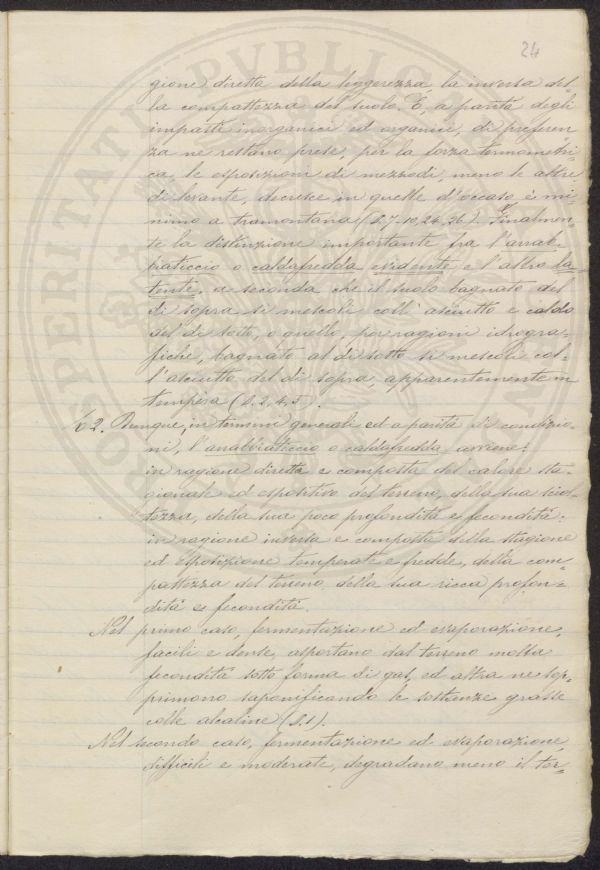 24
gione diretta della leggerezza, la inversa del-
la compattezza del suolo. E, a parità degli
impasti inorganici ed organici, di preferen-
za ne restano prese, per la forza termometri-
ca, le esposizioni di mezzodì, meno le altre
di levante, decresce in quelle d'occaso, è mi-
nimo a tramontana (§. 7-10, 24, 26). Finalmen-
te la distinzione importante fra l'arrab-
biaticcio o caldafredda evidente, e l'altro la-
tente, a seconda che il suolo bagnato del
di sopra si mescoli coll'asciutto e caldo
del di sotto, o quello, per ragioni idrogra-
fiche, bagnato al di sotto si mescoli col-
l'asciutto del di sopra apparentemente in
tempera (§. 2, 4, 5).
62. Dunque, in termini generali ed a parità di condizio-
ni, l'arrabbiaticcio o caldafredda avviene:
in ragione diretta e composta del calore sta-
gionale ed espositivo del terreno, della sua sciol-
tezza, della sua poco profondità e fecondità:
in ragione inversa e composta della stagione
ed esposizione temperate e fredde, della com-
pattezza del terreno della sua ricca profon-
dità e fecondità.
Nel primo caso, fermentazione ed evaporazione,
facili e dense, asportano dal terreno molta
fecondità sotto forma di gas, ed altra ne sop-
primono saponificando le sostanze grasse
colle alcaline (§. 1).
Nel secondo caso, fermentazione ed evaporazione,
difficili e moderate, degradano meno il ter-